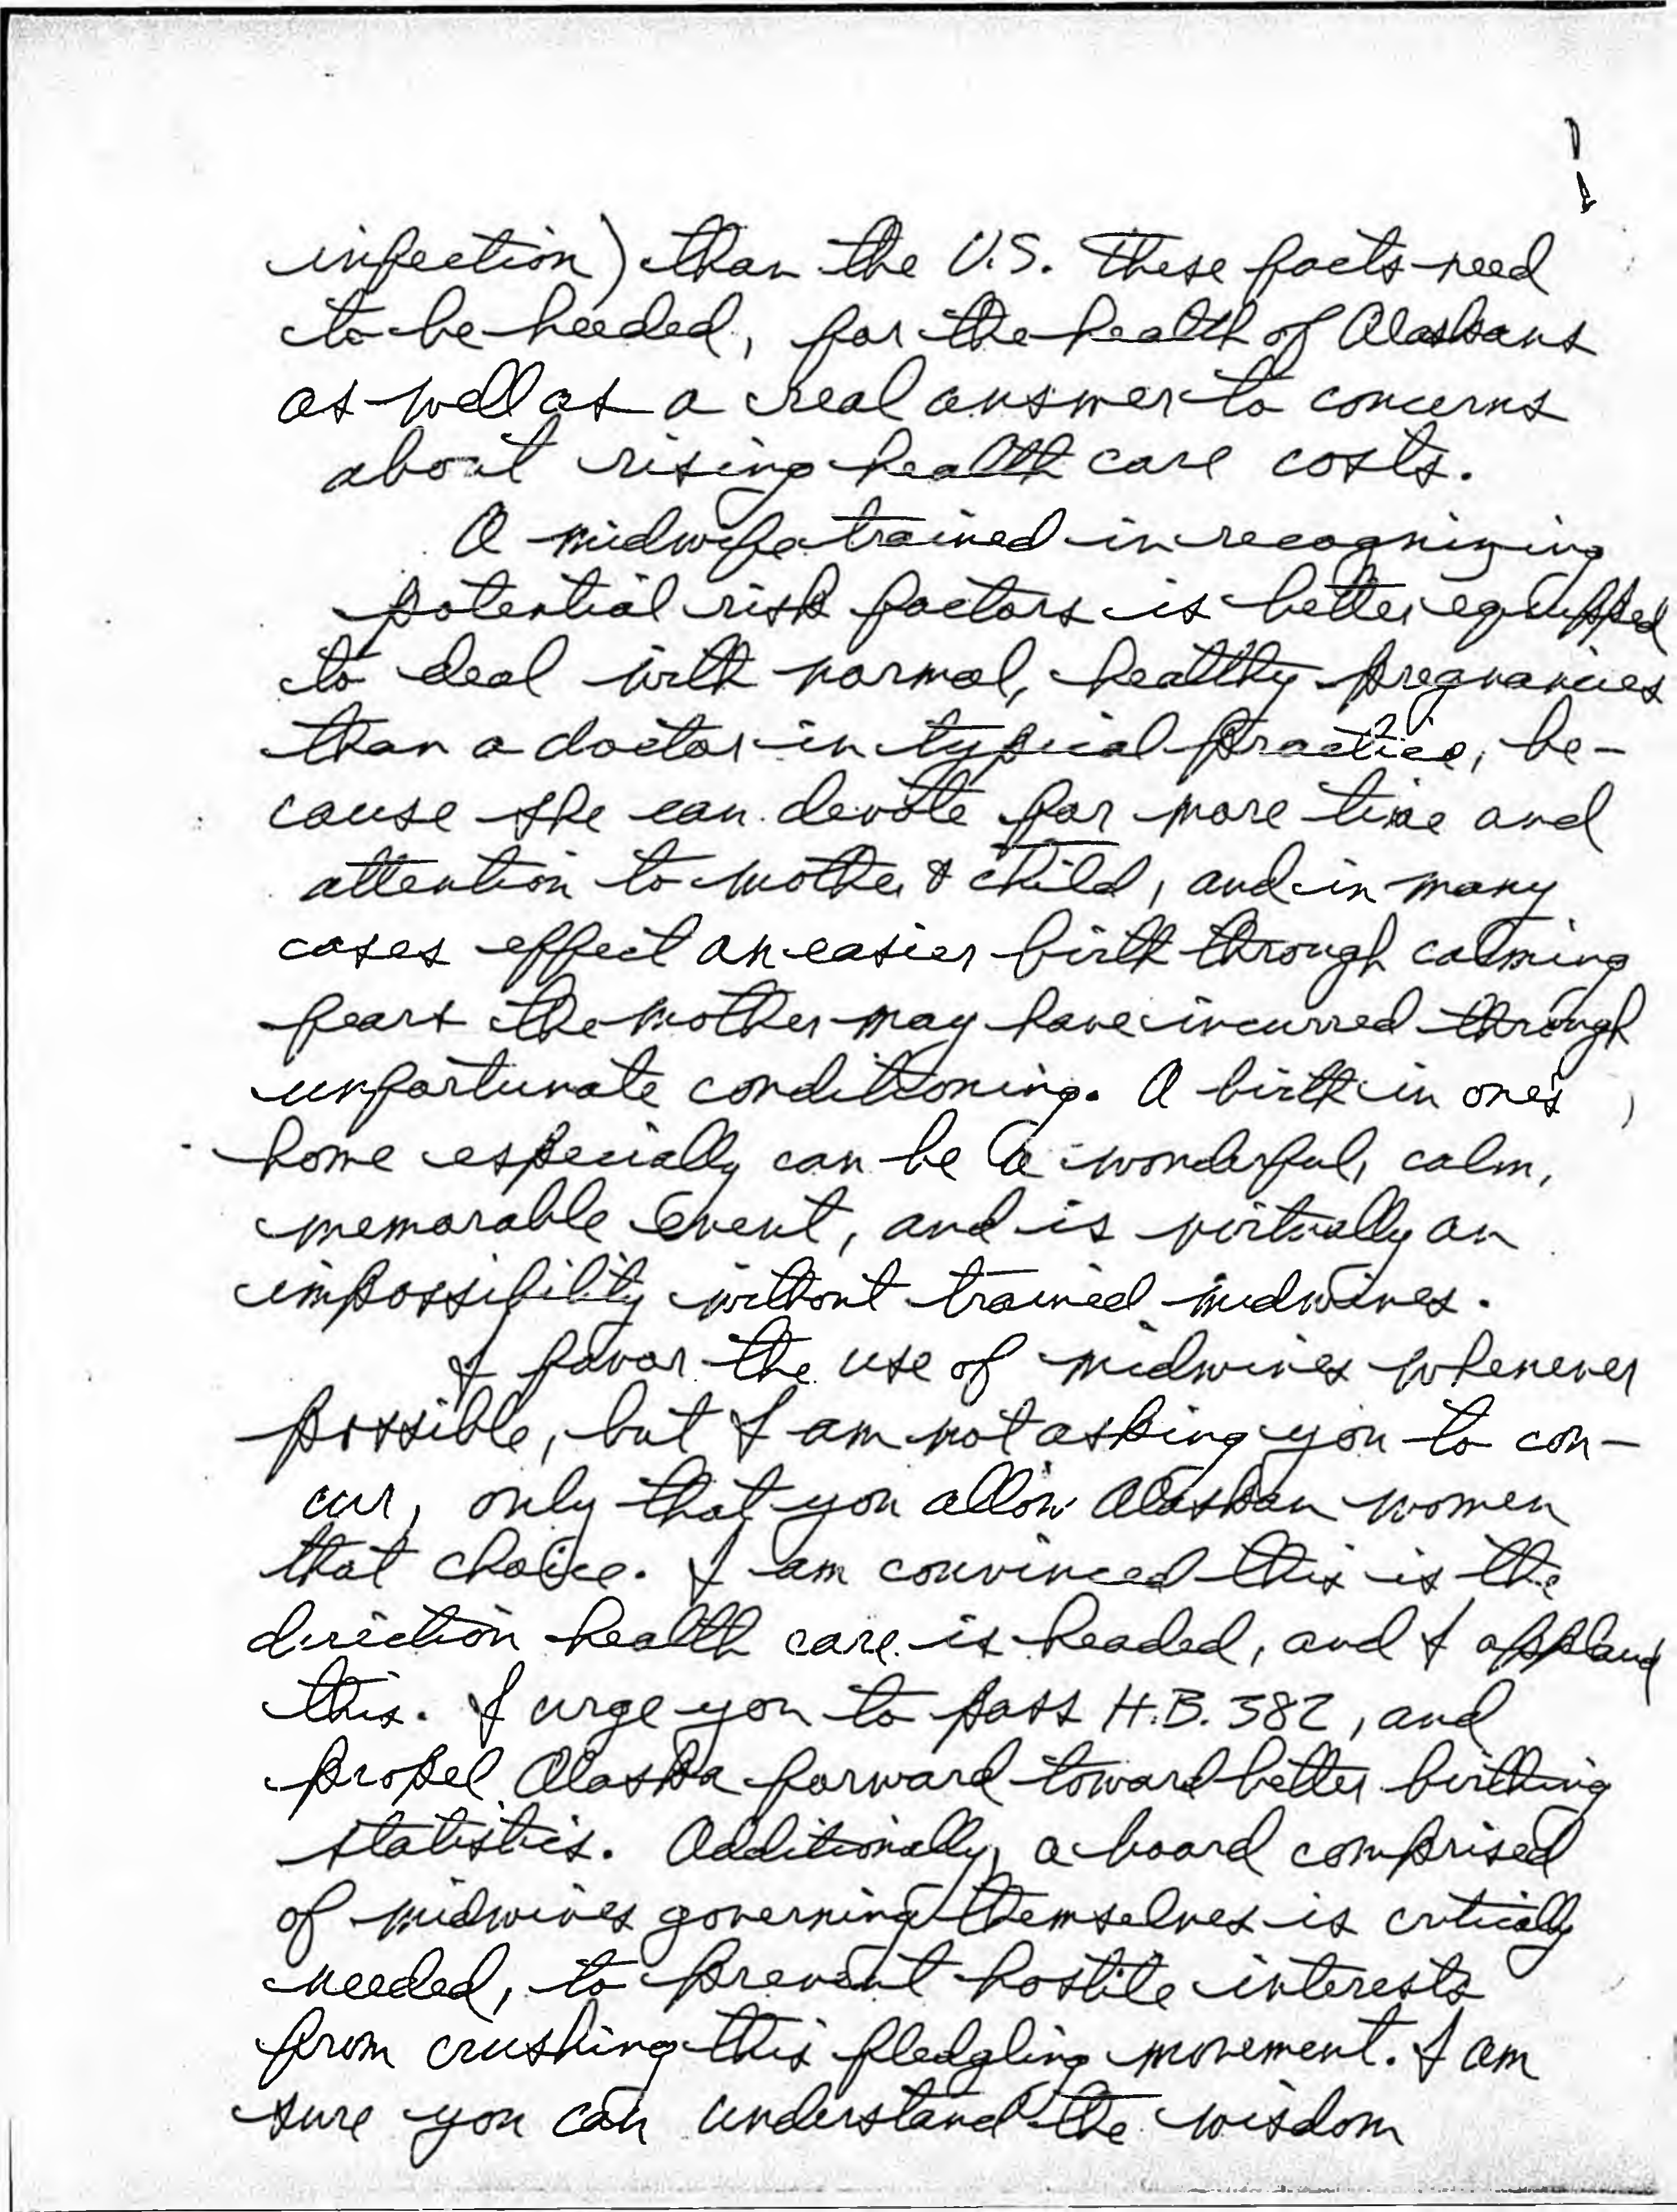 infection) than the U.S. These facts need
to be heeded, for the health of Alaskans
as well as a real answer to concerns
about rising health care costs.
A midwife trained in recognizing
potential risk factors is better equipped
to deal with normal, healthy pregnancies
than a doctor in typical practice, be-
cause she can devote far more time and
attention to mother & child, and in many
cases effect an easier birth through calming
fears the mother may have incurred through
unfortunate conditioning. A birth in one's
home especially can be a wonderful, calm,
memorable event, and is virtually an
impossibility without trained midwives.
I favor the use of midwives whenever
possible, but I am not asking you to con-
cur, only that you allow Alaskan women
that choice. I am convinced this is the
direction health care is headed, and I applaud
this. I urge you to pass H.B. 382, and
propel Alaska forward toward better birthing
statistics. Additionally, a board comprised
of midwives governing themselves is critically
needed, to prevent hostile interests
from crushing this fledgling movement. I am
sure you can understand the wisdom